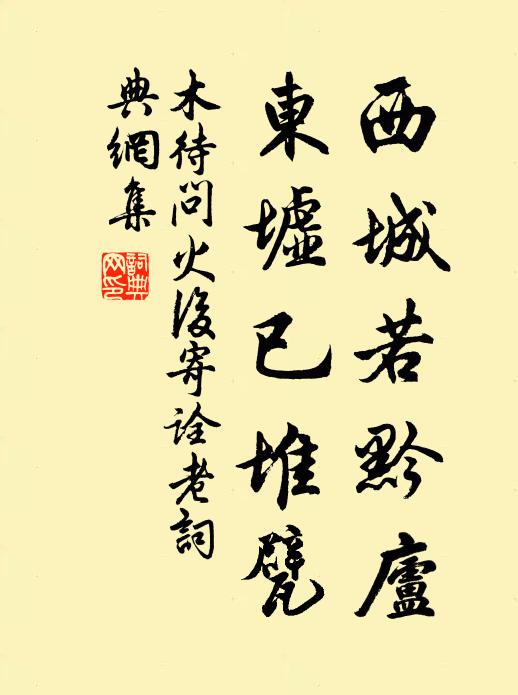 西城若黔廬
東墟已堆甓
木待問火後寄詮老詞
典網集
詞典網印